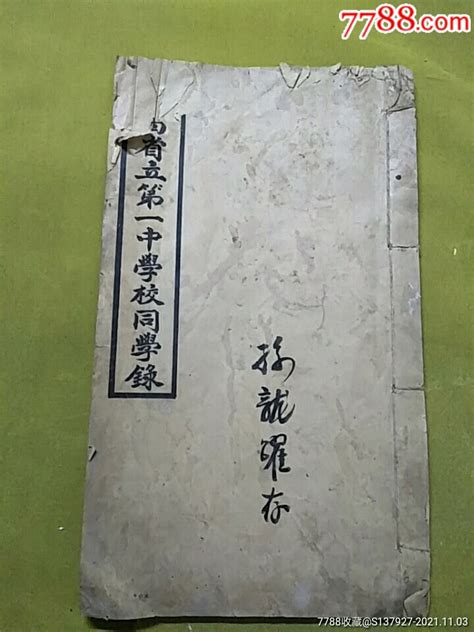 7788.com
中国收藏热线
省立第一中學校同學錄
孫龍存
7788收藏@S137927-2021.11.03